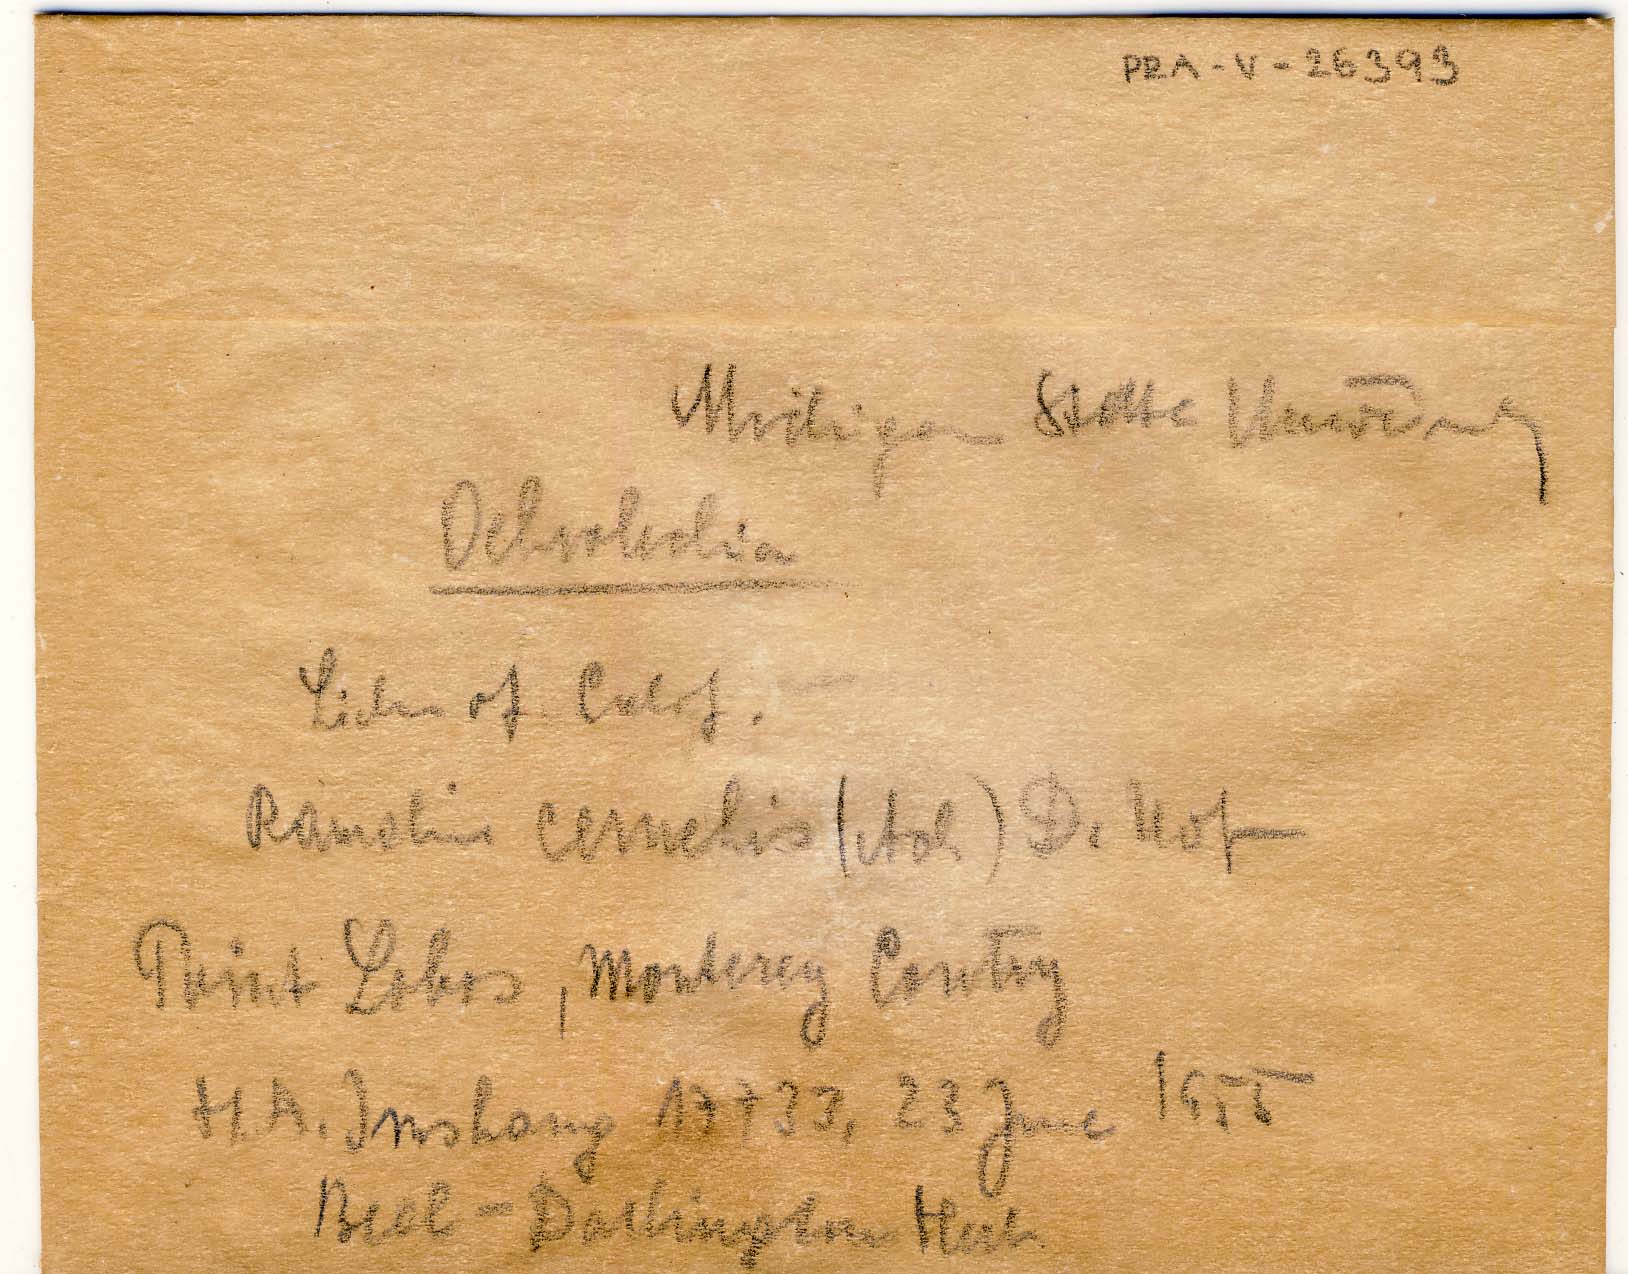 PRA-V-26393
Michigan State University
Ochrolechia
Lichen of Calif.
Ramalina (Ach.) D. Hof
Point Lobos, Monterey County
H.A. Imshaug 17733, 23 June 1955
Beal-Darlington Herb.